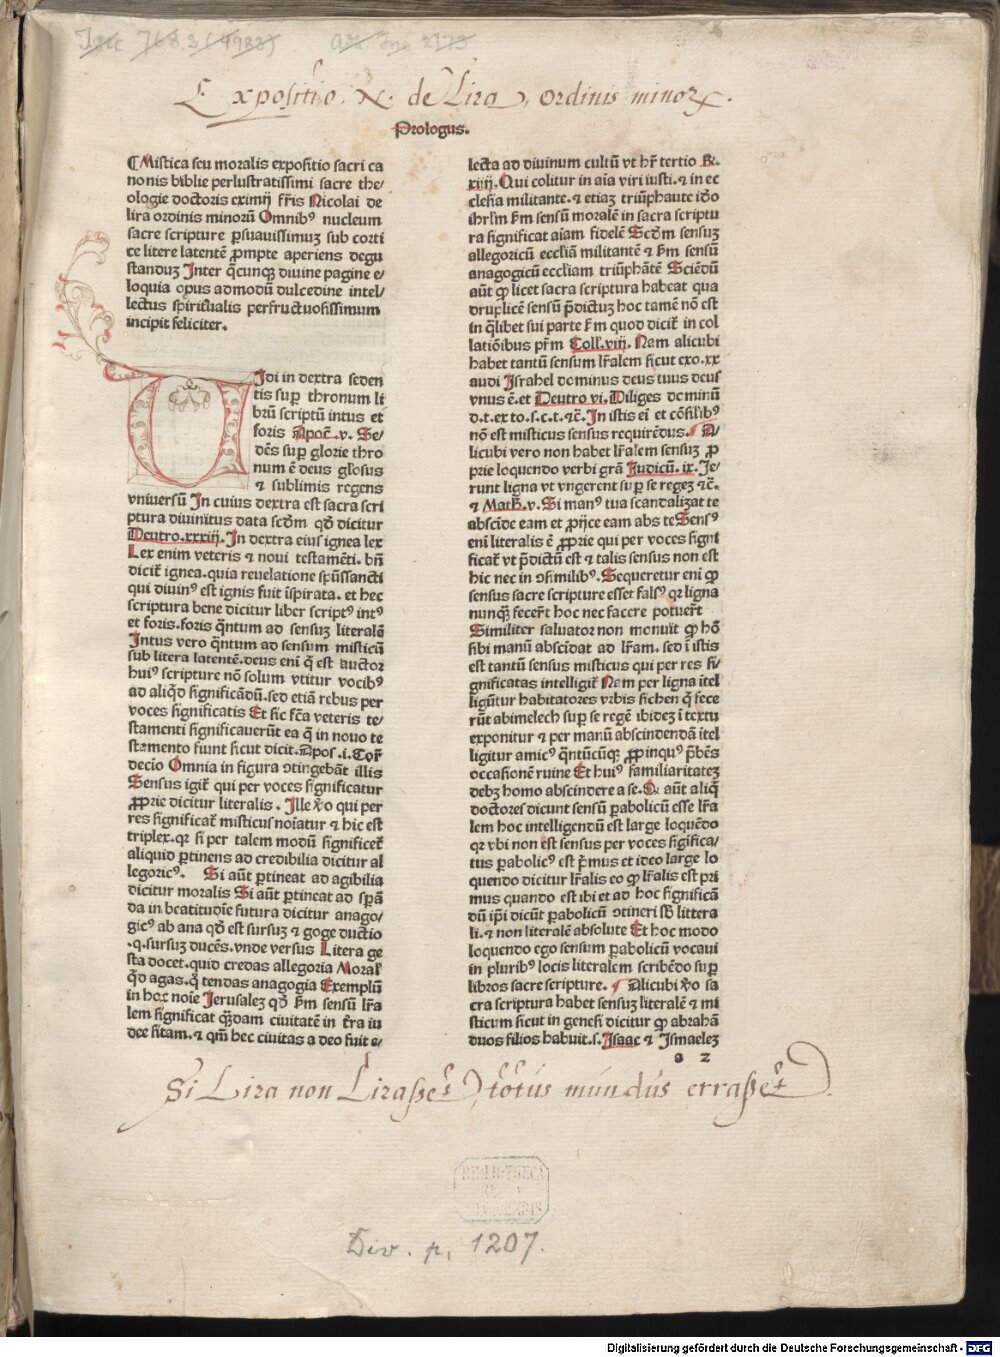 Expositio. N. de Lira, ordinis minorꝝ.
Prologus.
¶Mistica seu moralis expositio sacri ca
nonis biblie perlustratissimi sacre the/
ologie doctoris eximij fr̄is Nicolai de
lira ordinis minorū Omnibꝰ nucleum
sacre scripture ꝑsuauissimuꝫ sub corti
ce litere latentē ꝓmpte aperiens degu
standuꝫ Inter q̄cunqꝫ diuine pagine e/
loquia opus admodū dulcedine intel/
lectus spiritualis perfructuosissimum
incipit feliciter.
UIdi in dextra seden
tis suꝑ thronum li
brū scriptū intus et
foris Apoc̄.v. Se/
dēs suꝑ glorie thro
num ē deus gl̄osus
⁊ sublimis regens
vniuersū In cuius dextra est sacra scri
ptura diuinitus data scd̄m qd̄ dicitur
Deutro.xxxiij. In dextra eius ignea lex
Lex enim veteris ⁊ noui testamēti. bn̄
dicit̄ ignea.quia reuelatione spūssancti
qui diuinꝰ est ignis fuit īspirata. et hec
scriptura bene dicitur liber scriptꝰ intꝰ
et foris.foris q̄ntum ad sensuꝫ literalē
Intus vero q̄ntum ad sensum misticū
sub litera latentē.deus eni q̄ est auctor
huiꝰ scripture nō solum vtitur vocibꝰ
ad aliq̄d significādū.sed etiā rebus per
voces significatis Et sic fc̄a veteris te/
stamenti significauerūt ea q̄ in nouo te
stamento fiunt sicut dicit.Apos.i.Cor̄
decio Omnia in figura ↄtingebāt illis
Sensus igit̄ qui per voces significatur
ꝓprie dicitur literalis. Ille v̄o qui per
res significat̄ misticus noiatur ⁊ hic est
triplex.qꝛ si per talem modū significet̄
aliquid ꝑtinens ad credibilia dicitur al
legoricꝰ. Si aūt ꝑtineat ad agibilia
dicitur moralis Si aūt ꝑtineat ad sꝑā
da in beatitudīe futura dicitur anago/
gicꝰ ab ana qd̄ est sursuꝫ ⁊ goge ductio
.q.sursuꝫ ducēs.vnde versus Litera ge
sta docet.quid credas allegoria Moral̓
q̄d agas.q̄ tendas anagogia Exemplū
in hoc noīe Jerusaleꝫ qd̄ ẜm sensū lr̄a
lem significat q̄ꝫdam ciuitatē in t̄ra iu
dee sitam.⁊ qm̄ hec ciuitas a deo fuit e/
lecta ad diuinum cultū vt hr̄ tertio R̄.
xiiij. Qui colitur in aīa viri iusti.⁊ in ec
clesia militante.⁊ etiaꝫ triūphante id̄o
ihrl̄m ẜm sensū moralē in sacra scriptu
ra significat aīam fidelē Scd̄m sensuꝫ
allegoricū eccliā militantē ⁊ ẜm sensū
anagogicū eccliam triūphātē Sciēdū
aūt ꝙ licet sacra scriptura habeat qua
druplicē sensū p̄dictuꝫ hoc tamē nō est
in q̄libet sui parte ẜm quod dicit̄ in col
latiōibus pr̄m Coll̓.viij. Nam alicubi
habet tantū sensum lr̄alem sicut exo.xx
audi Israhel dominus deus tuus deus
vnus ē.et Deutro vi. Diliges dominū
d.t.ex to.s.c.t.⁊c̄. In istis ei et cōsil̓ibꝰ
nō est misticus sensus requirēdus. ¶A/
licubi vero non habet lr̄alem sensuꝫ ꝓ
prie loquendo verbi grā Iudicū.ix. Ie/
runt ligna vt vngerent suꝑ se regeꝫ ⁊c̄.
⁊ Math̄.v. Si manꝰ tua scandalizat te
abscide eam et ꝓijce eam abs te Sensꝰ
eni literalis ē ꝓprie qui per voces signi
ficat̄ vt p̄dictū est ⁊ talis sensus non est
hic nec in ↄsimilibꝰ. Sequeretur eni ꝙ
sensus sacre scripture esset falsꝰ qꝛ ligna
nunqꝫ fecer̄t hoc nec facere potuer̄t
Similiter saluator non monuit ꝙ hō
sibi manū abscidat ad lr̄am. sed ī istis
est tantū sensus misticus qui per res si/
gnificatas intelligit̄ Nam per ligna ītel
ligūtur habitatores vrbis sichen q̄ fece
rūt abimelech suꝑ se regē ibideꝫ ī textu
exponitur ⁊ per manū abscindendā ītel
ligitur amicꝰ q̄ntūcūqꝫ ꝓpinquꝰ p̄bēs
occasionē ruine Et huiꝰ familiaritateꝫ
debꝫ homo abscindere a se. Qꝛ aūt aliq̄
doctores dicunt sensū ꝑabolicū esse lr̄a
lem hoc intelligendū est large loquēdo
qꝛ vbi non est sensus per voces sigifica/
tus ꝑabolicꝰ est p̄mus et ideo large lo
quendo dicitur lr̄alis eo ꝙ lr̄alis est pri
mus quando est ibi et ad hoc significā
dū ip̄i dicūt ꝑabolicū ↄtineri sb̄ littera
li.⁊ non literalē absolute Et hoc modo
loquendo ego sensum ꝑabolicū vocaui
in pluribꝰ locis literalem scribēdo suꝑ
libros sacre scripture. ¶Alicubi v̄o sa
cra scriptura habet sensuꝫ literalē ⁊ mi
sticum sicut in genesi dicitur ꝙ abrahā
duos filios habuit.s. Isaac ⁊ Ismaeleꝫ
a 2
Si Lira non Lirasset, totus mundus errasset.
BIBLIOTHECA
REGIA
MONACENSIS
Div. p. 1207.
Digitalisierung gefördert durch die Deutsche Forschungsgemeinschaft - DFG